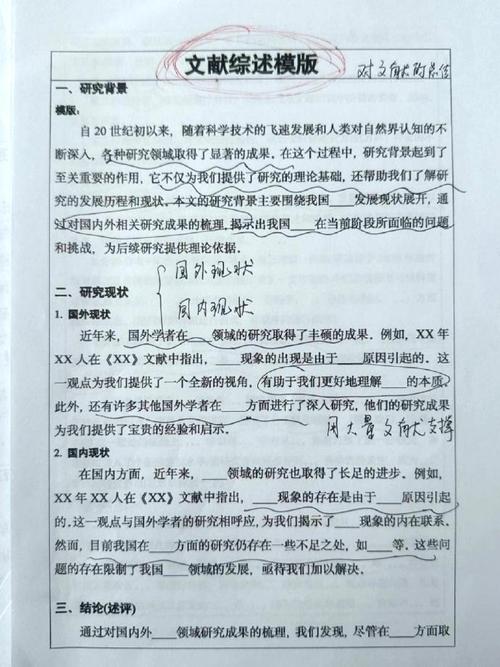 文献综述模版
对文献的总结
一、研究背景
模版：
自 20 世纪初以来，随着科学技术的飞速发展和人类对自然界认知的不
断深入，各种研究领域取得了显著的成果。在这个过程中，研究背景起到了
至关重要的作用，它不仅为我们提供了研究的理论基础，还帮助我们了解研
究的发展历程和现状。本文的研究背景主要围绕我国____发展现状展开，通
过对国内外相关研究成果的梳理，揭示出我国____在当前阶段所面临的问题
和挑战，为后续研究提供理论依据。
国外现状
二、研究现状
国内现状
1. 国外现状
近年来，国外学者在____领域的研究取得了丰硕的成果。例如，XX 年
XX 人在《XX》文献中指出，____现象的出现是由于____原因引起的。这
一观点为我们提供了一个全新的视角，有助于我们更好地理解____的本质。
此外，还有许多其他国外学者在____方面进行了深入研究，他们的研究成果
为我们提供了宝贵的经验和启示。
用大量文献支撑
2. 国内现状
在国内方面，近年来，____领域的研究也取得了长足的进步。例如，
XX 年 XX 人在《XX》文献中指出，____现象的存在是由于____原因引起
的。这一观点与国外学者的研究相呼应，为我们揭示了____现象的内在联系。
然而，目前我国在____方面的研究仍存在一些不足之处，如____等。这些问
题的存在限制了我国____领域的发展，亟待我们加以解决。
三、结论(述评)
通过对国内外____领域研究成果的梳理，我们发现，尽管在____方面取